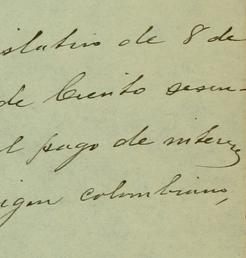 islativo de 8 de
de Ciento sesen-
l pago de interes
igen colombiano,